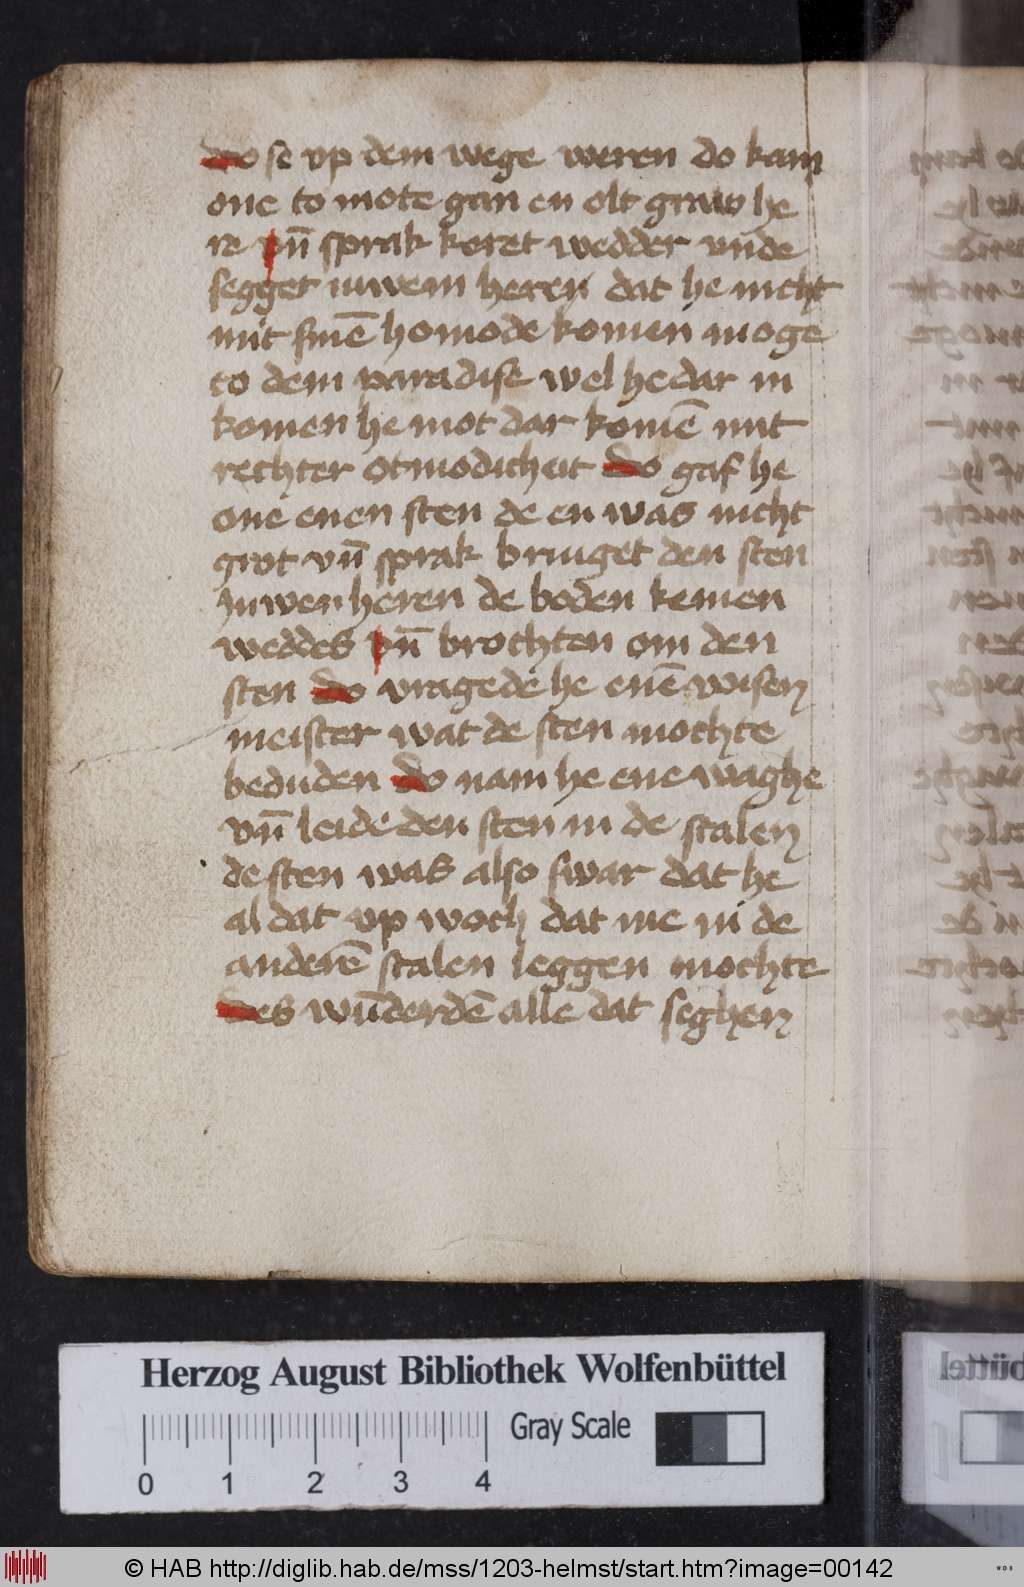 do se vp dem wege weren do kam
one to mote gan en olt graw he
re vn̄ sprak keret wedder vnde
segget iuwem heren dat he nicht
mit sinē homode komen moge
to dem paradise wel he dar in
komen he mot dar komē mit
rechter otmodicheit do gaf he
one enen sten de en was nicht
grot vn̄ sprak bringet den sten
Juwen heren de boden kemen
weddes vn̄ brochten om den
sten do vragede he enē wisen
meister wat de sten mochte
beduden do nam he ene waghe
vn̄ leide den sten in de scalen
de sten was also swar dat he
al dat vp woch dat me in de
anderē scalen leggen mochte
des wūderdē alle dat seghen
Herzog August Bibliothek Wolfenbüttel
Gray Scale
0 1 2 3 4
© HAB http://diglib.hab.de/mss/1203-helmst/start.htm?image=00142